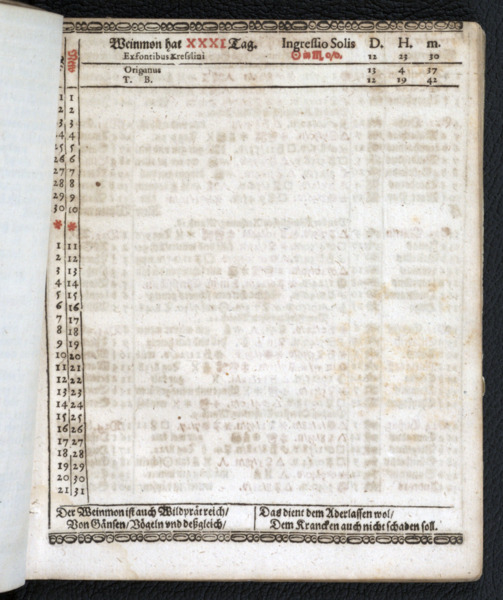 Weinmon hat XXXI Tag. Ingressio Solis D. H. m.
Ex fontibus Kresslini ☉ in ♏ 0/0. 12 23 30
Origanus 13 4 17
T. B. 12 19 42
1 1
2 2
3 3
4 4
25 5
26 6
27 7
28 8
29 9
30 10
* *
1 11
2 12
3 13
4 14
5 15
6 16
7 17
8 18
9 19
10 20
11 21
12 22
13 23
14 24
15 25
16 26
17 27
18 28
19 29
20 30
21 31
Der Weinmon ist auch Wildprät reich/
Von Gänsen/ Vögeln vnd deßgleich/
Das dient dem Aderlassen wol/
Dem Krancken auch nicht schaden soll.